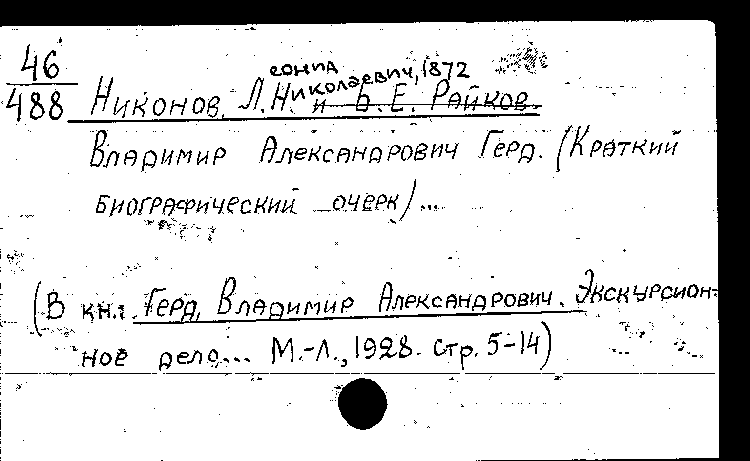 46
488
еонид
Николаевич, 1872
Никонов, Л.Н. и Б.Е. Райков.
Владимир Александрович Герд. (Краткий
биографический очерк)...
(В кн.: Герд, Владимир Александрович. Экскурсион-
ное дело... М.-Л., 1928. стр. 5-14)